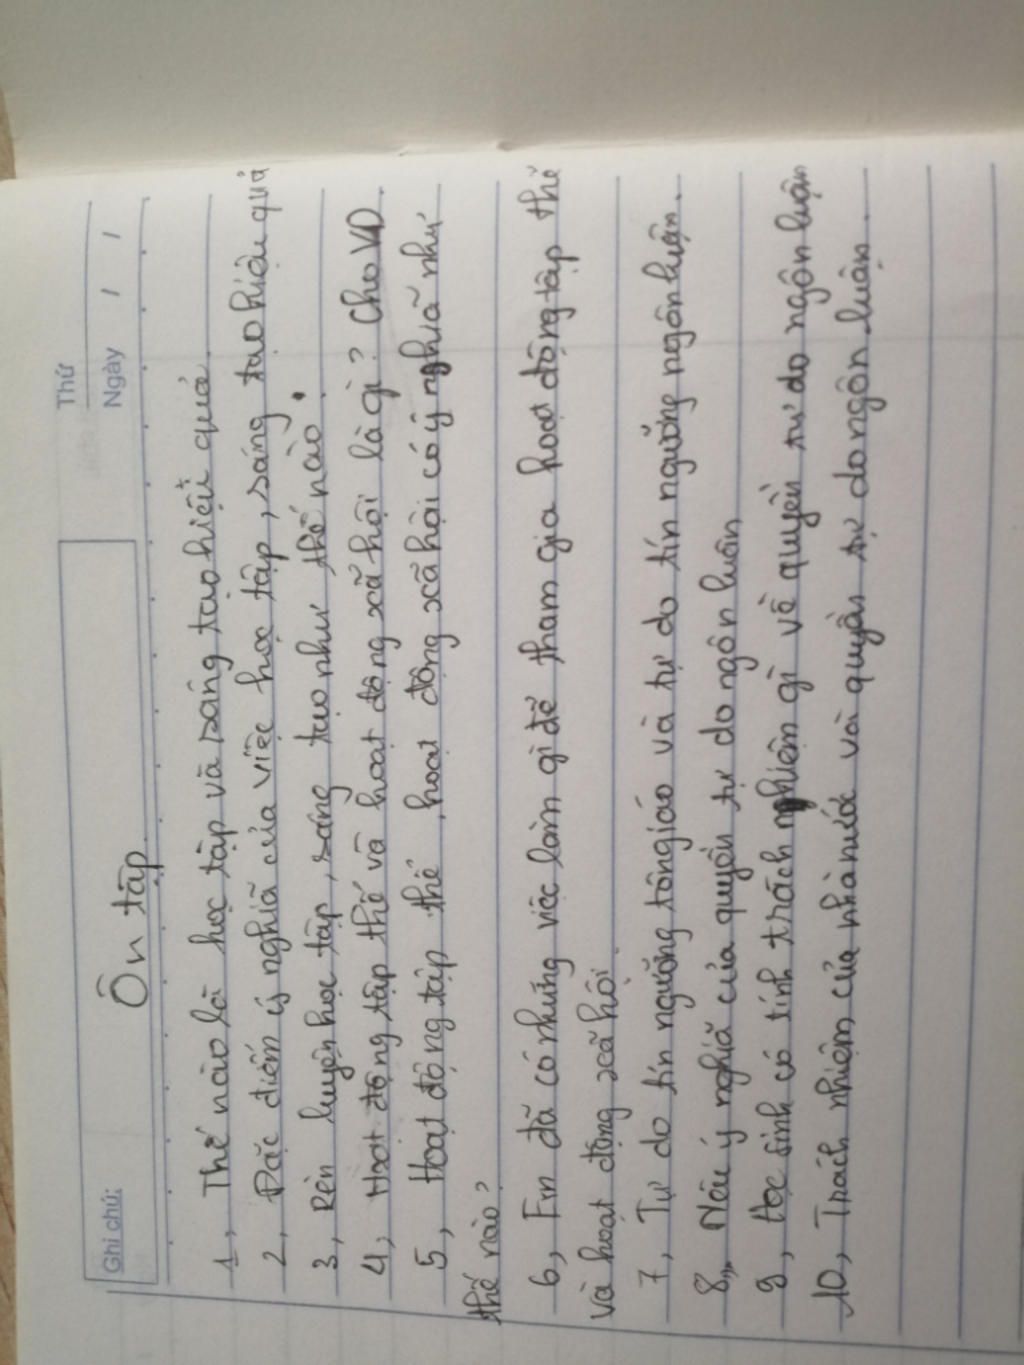 Thứ
Ghi chú:
Ngày / /
Ôn tập
1, Thế nào là học tập và sáng tạo hiệu quả.
2, Đặc điểm ý nghĩa của việc học tập, sáng tạo hiệu quả
3, Rèn luyện học tập, sáng tạo như thế nào.
4, Hoạt động tập thế và hoạt động xã hội là gì? Cho VD
5, Hoạt động tập thể, hoạt động xã hội có ý nghĩa như
thế nào?
6, Em đã có những việc làm gì để tham gia hoạt động tập thể
và hoạt động xã hội.
7, Tự do tín ngưỡng tôn giáo và tự do tín ngưỡng ngôn luận.
8, Nêu ý nghĩa của quyền tự do ngôn luân
9, Học sinh có tính trách nghiệm gì về quyền tự do ngôn luận
10, Trách nhiệm của nhà nước và quyền tự do ngôn luận.